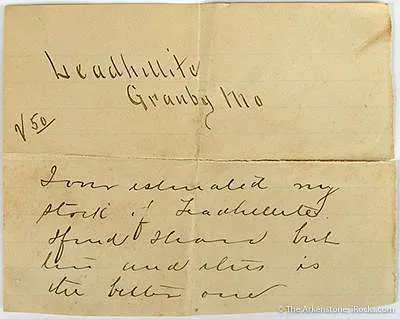 Leadhillite
Granby Mo
√50
I over estimated my
stock of Leadhillite.
find I have but
two and this is
the better one
© The Arkenstone, iRocks.com